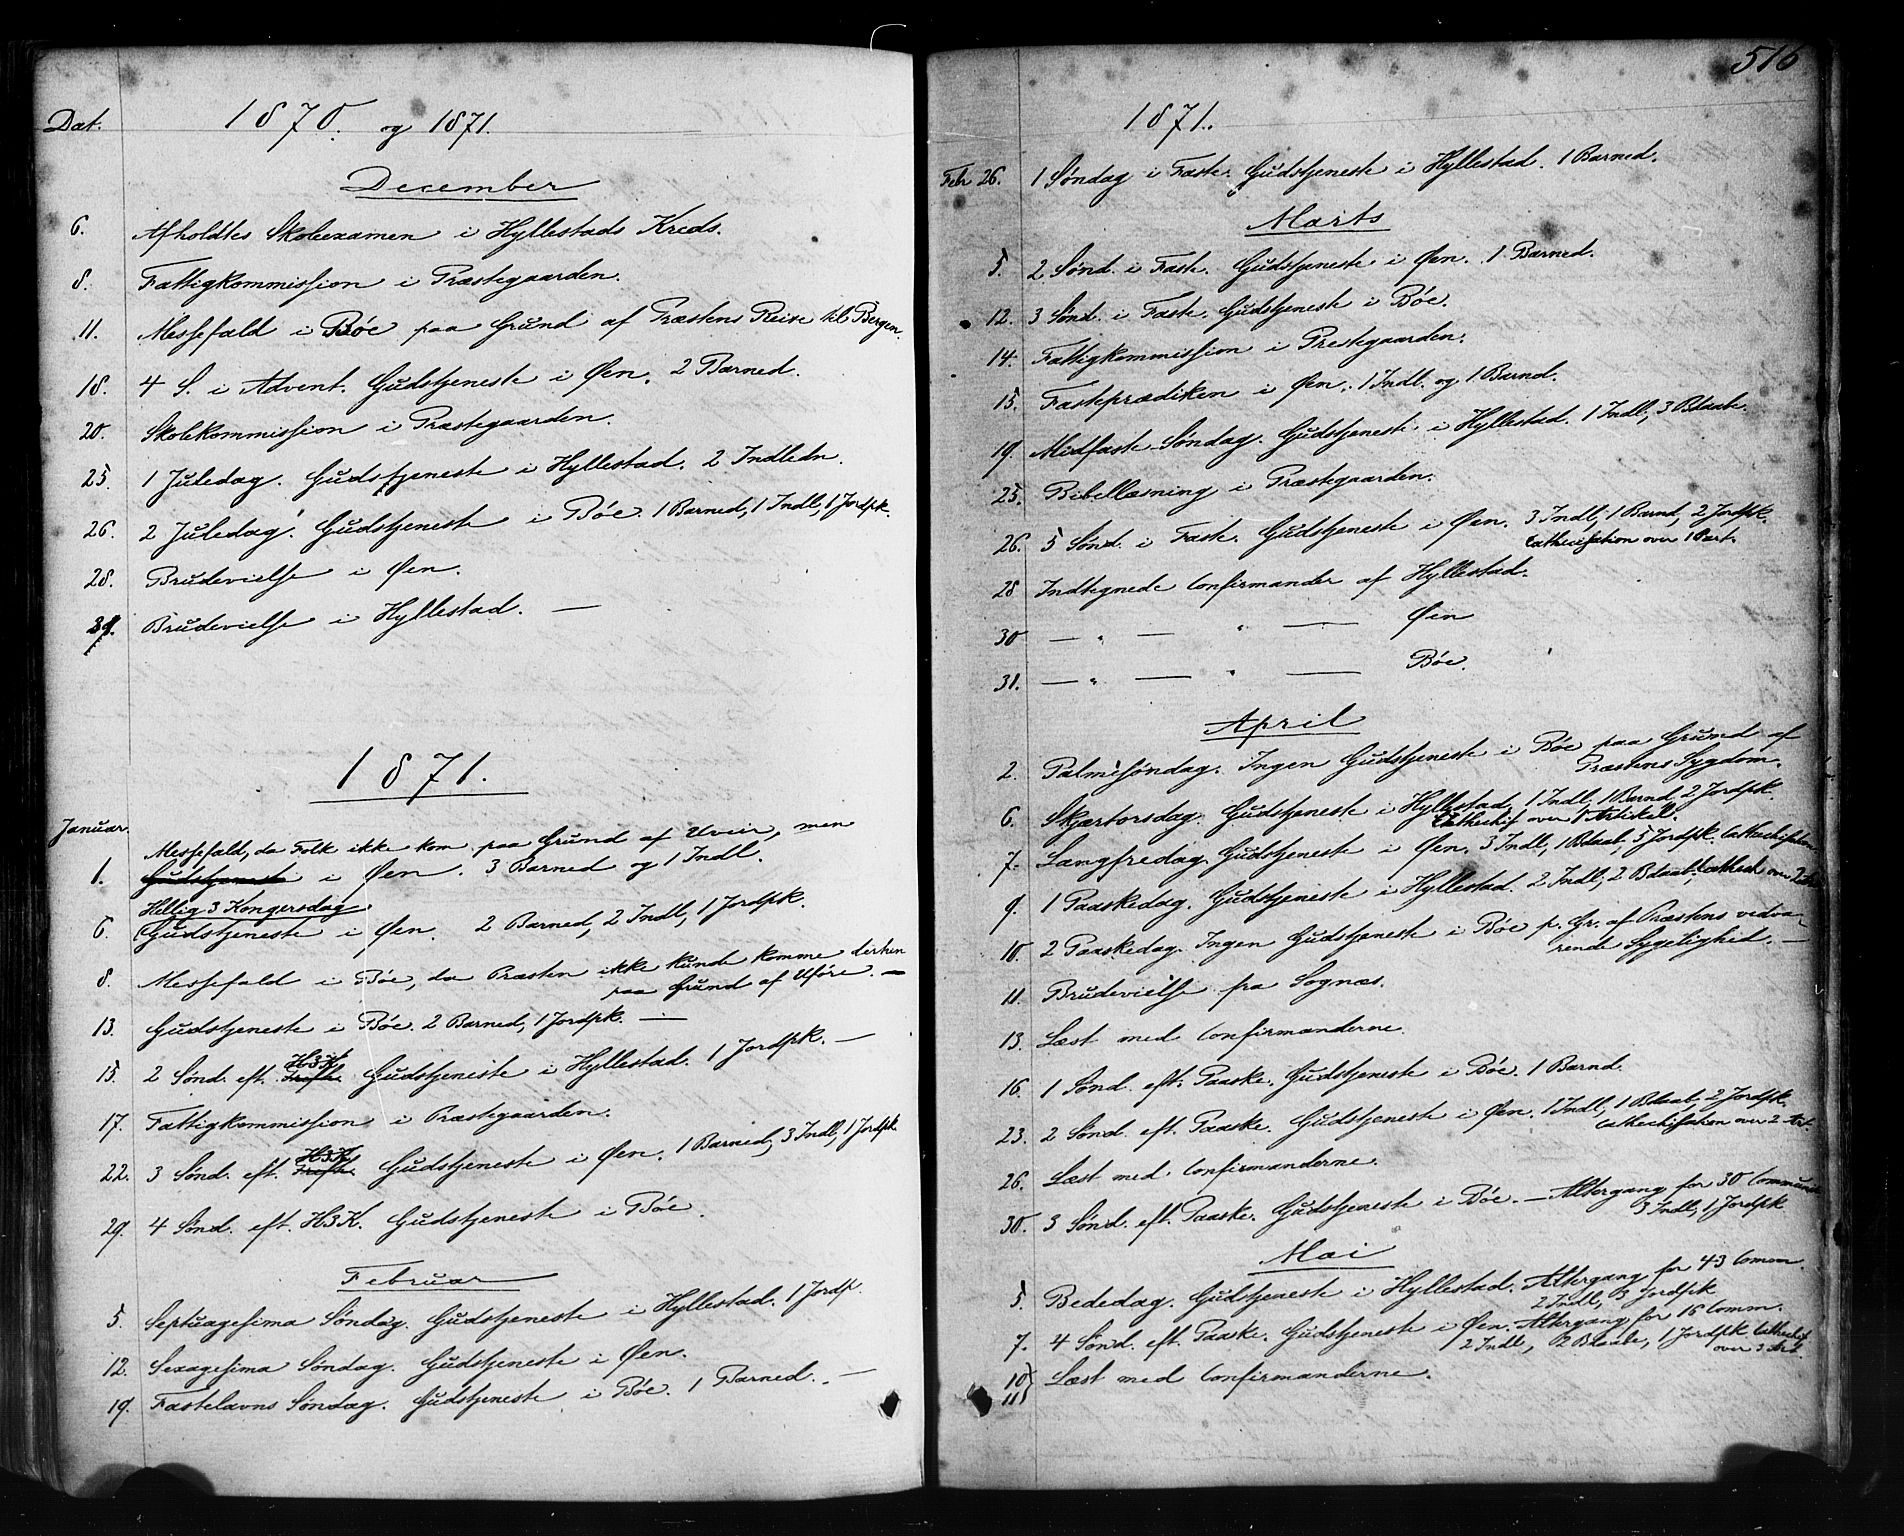 Dat.
1870. og 1871.
December
6. Afholdtes Skoleexamen i Hyllestads Kreds.
8. Fattigkommission i Præstegaarden.
11. Messefald i Bøe paa Grund af Præstens Reise til Bergen.
18. 4 S. i Advent. Gudstjeneste i Øen. 2 Barned.
20. Skolekommission i Præstegaarden.
25. 1 Juledag. Gudstjeneste i Hyllestad. 2 Indledn.
26. 2 Juledag. Gudstjeneste i Bøe. 1 Barned, 1 Indl, 1 Jordpk.
28. Brudevielse i Øen.
Brudevielse i Hyllestad. —
1871.
Januar.
Messefald, da Folk ikke kom paa Grund af Uveir, men
1. Gudstjeneste i Øen. 3 Barned og 1 Indl.
Hellig 3 Kongersdag.
6. Gudstjeneste i Øen. 2 Barned, 2 Indl, 1 Jordpk.
8. Messefald i Bøe, da Præsten ikke kunde komme derhen
paa Grund af Uføre. —
13. Gudstjeneste i Bøe. 2 Barned, 1 Jordpk. —
H3K
15. 2 Sønd. eft. Gudstjeneste i Hyllestad. 1 Jordpk. —
17. Fattigkommission i Præstegaarden.
H3K
22. 3 Sønd. eft. Gudstjeneste i Øen. 1 Barned, 3 Indl, 1 Jordpk
29. 4 Sønd. eft. H3K. Gudstjeneste i Bøe.
Februar
5. Septuagesima Søndag. Gudstjeneste i Hyllestad. 1 Jordp.
12. Sexagesima Søndag. Gudstjeneste i Øen.
19. Fastelavns Søndag. Gudstjeneste i Bøe. 1 Barned. —
516
1871.
Febr 26. 1 Søndag i Faste. Gudstjeneste i Hyllestad. 1 Barned.
Marts
5. 2 Sønd. i Faste. Gudstjeneste i Øen. 1 Barned.
12. 3 Sønd. i Faste. Gudstjeneste i Bøe.
14. Fattigkommission i Prestegaarden.
15. Fasteprædiken i Øen. 1 Indl. og 1 Barnd.
19. Midfaste Søndag. Gudstjeneste i Hyllestad. 1 Indl, 3 Bdaab.
25. Bibellæsning i Præstegaarden.
26. 5 Sønd. i Faste. Gudstjeneste i Øen. 3 Indl, 1 Barnd, 2 Jordpk.
Cathecisation over 1 Part.
28 Indtegnede Confirmander af Hyllestad.
30 — " — " — Øen
31. — " — " — Bøe.
April
2. Palmesøndag. Ingen Gudstjeneste i Bøe paa Grund af
Præstens Sygdom.
6. Skjærtorsdag. Gudstjeneste i Hyllestad, 1 Indl, 1 Barnd, 2 Jordpk.
Cathechis over 1 Artikel.
7. Langfredag. Gudstjeneste i Øen. 3 Indl, 1 Bdaab, 5 Jordpk. Cathechisation
9. 1 Paaskedag. Gudstjeneste i Hyllestad. 2 Indl, 2 Bdaab, Cathech over 2 Ar
10. 2 Paaskedag. Ingen Gudstjeneste i Bøe p. Gr. af Præstens vedva-
rende Sygelighed. —
11. Brudevielse fra Sognæs.
13. Læst med Confirmanderne.
16. 1 Sønd. eft. Paaske. Gudstjeneste i Bøe. 1 Barnd.
23. 2 Sønd. eft. Paaske. Gudstjeneste i Øen. 1 Indl, 1 Bdaab, 2 Jordpk.
Cathechisation over 2 Art.
26. Læst med Confirmanderne.
30. 3 Sønd. eft. Paaske. Gudstjeneste i Bøe. — Altergang for 30 Commun
3 Indl, 1 Jordpk
Mai
5. Bededag. Gudstjeneste i Hyllestad. Altergang for 43 Comm.
2 Indl, 3 Jordpk
7. 4 Sønd. eft. Paaske. Gudstjeneste i Øen. Altergang for 16 Comm.
2 Indl, 2 Bdaabe, 1 Jordpk Cathechis
over 3 Art.
10 } Læst med Confirmanderne.
11